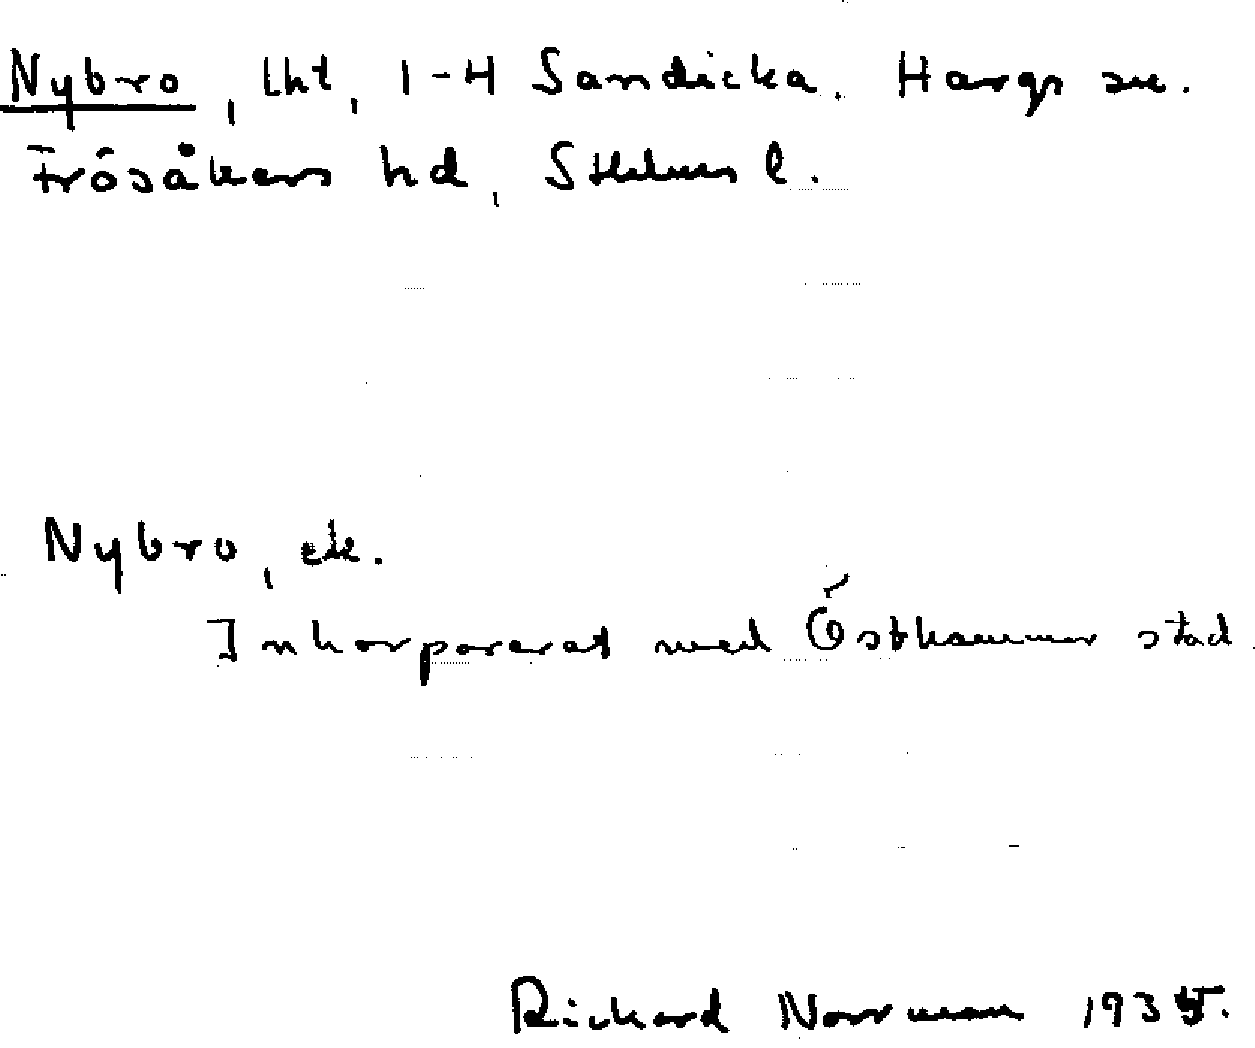 Nybro, lht, 1-4 Sandicka. Hargs sn.
Frösåkers hd, Sthlms l.
Nybro, ek.
Inkorporerat med Östhammar stad.
Richard Norrman 1935.